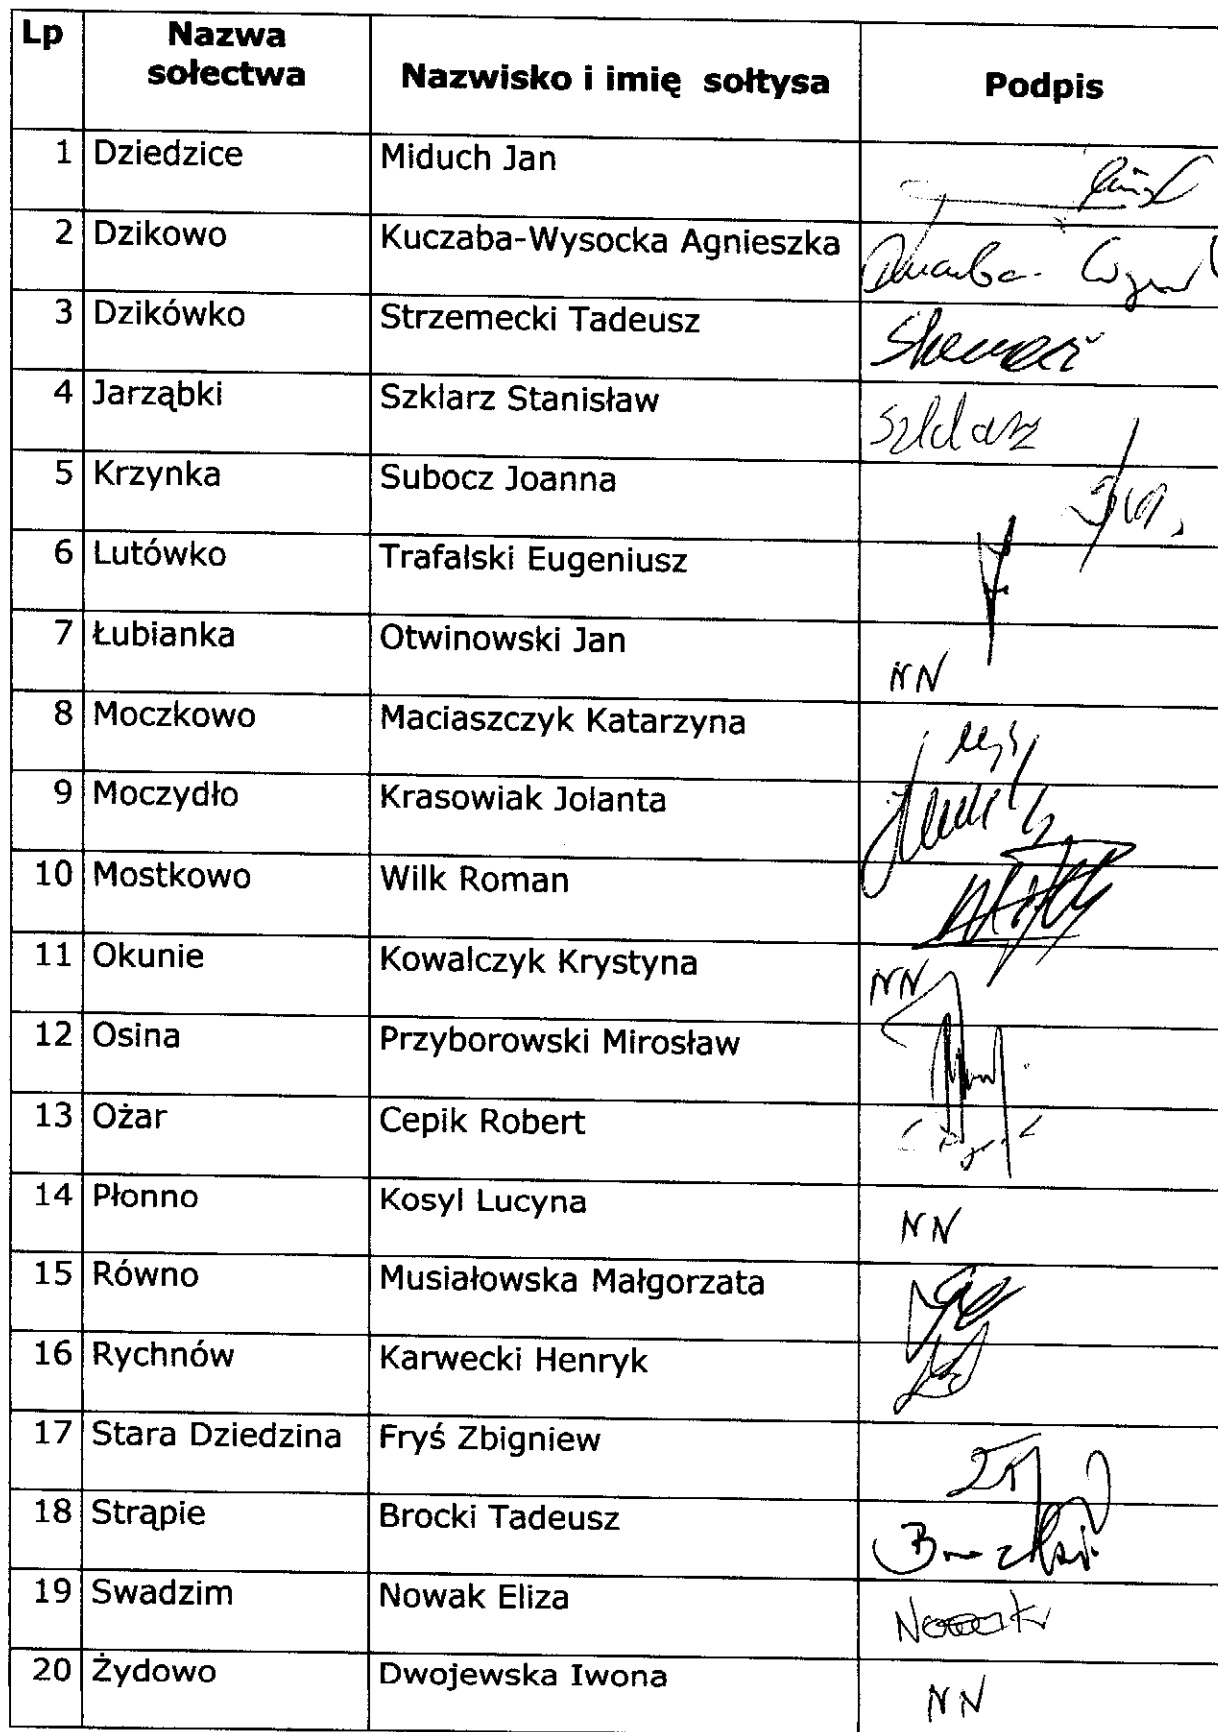 Lp Nazwa sołectwa Nazwisko i imię sołtysa Podpis
1 Dziedzice Miduch Jan
2 Dzikowo Kuczaba-Wysocka Agnieszka
3 Dzikówko Strzemecki Tadeusz
4 Jarząbki Szklarz Stanisław Szklarz
5 Krzynka Subocz Joanna
6 Lutówko Trafalski Eugeniusz
7 Łubianka Otwinowski Jan NN
8 Moczkowo Maciaszczyk Katarzyna
9 Moczydło Krasowiak Jolanta
10 Mostkowo Wilk Roman
11 Okunie Kowalczyk Krystyna NN
12 Osina Przyborowski Mirosław
13 Ożar Cepik Robert
14 Płonno Kosyl Lucyna NN
15 Równo Musiałowska Małgorzata
16 Rychnów Karwecki Henryk
17 Stara Dziedzina Fryś Zbigniew
18 Strąpie Brocki Tadeusz Brocki
19 Swadzim Nowak Eliza Nowak
20 Żydowo Dwojewska Iwona NN